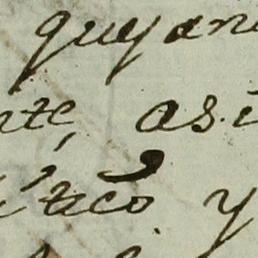 quejan
nte, asi
tico y